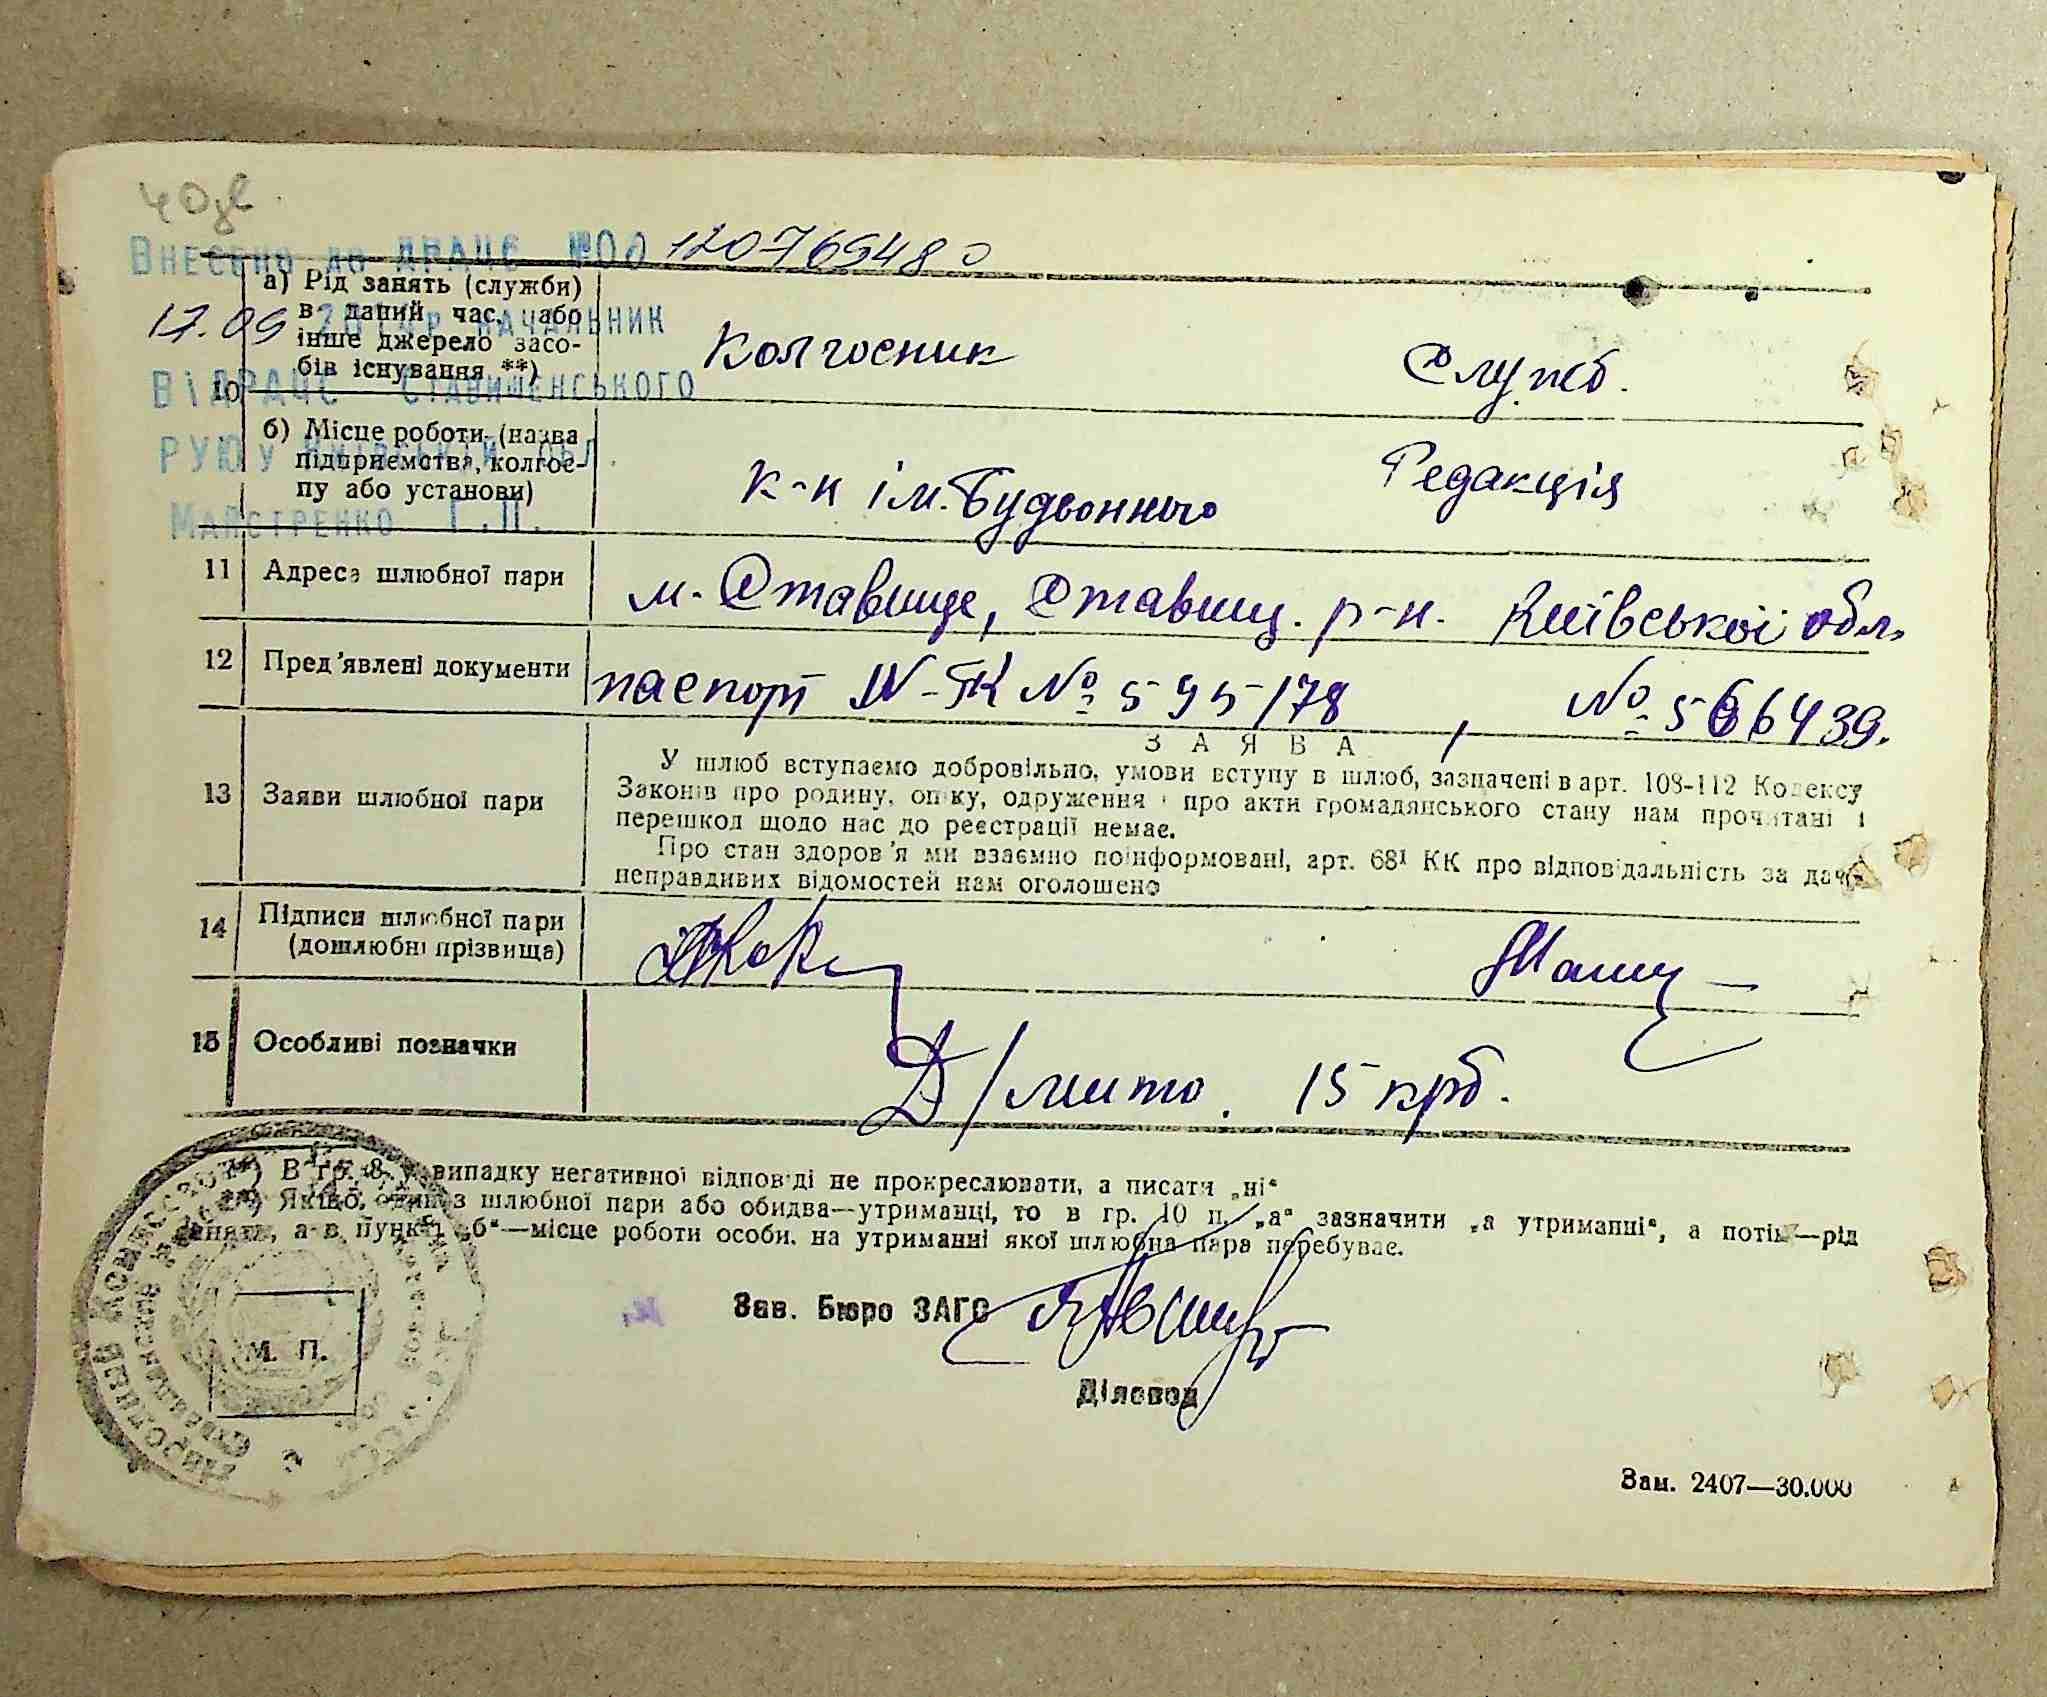 40зв.
Внесено до ДРАЦС №00120769480
17.09 2014р начальник
ВіДРАЦС Ставищенського
РУЮ у Київській обл.
Майстренко Г.П.
10
а) Рід занять (служби)
в даний час, або
інше джерело засо-
бів існування **)
Колгосник Служб.
б) Місце роботи (назва
підприємства, колгос-
пу або установи)
к-п ім. Будьонного Редакція
11 Адреса шлюбної пари м. Ставище, Ставищ. р-н. Київської обл.
12 Пред'явлені документи паспорт IV-ТК № 595178, № 566439.
13 Заяви шлюбної пари
ЗАЯВА
У шлюб вступаємо добровільно, умови вступу в шлюб, зазначені в арт. 108-112 Кодексу
Законів про родину, опіку, одруження і про акти громадянського стану нам прочитані і
перешкод щодо нас до реєстрації немає.
Про стан здоров'я ми взаємно поінформовані, арт. 68¹ КК про відповідальність за дачу
неправдивих відомостей нам оголошено
14 Підписи шлюбної пари
(дошлюбні прізвища)
15 Особливі позначки Д/мито. 15 крб.
*) В гр. 8 у випадку негативної відповіді не прокреслювати, а писати „ні“
**) Якщо, один з шлюбної пари або обидва—утриманці, то в гр. 10 п. „а“ зазначити „а утриманні“, а потім—рід
занять, а в пункті „б“—місце роботи особи, на утриманні якої шлюбна пара перебуває.
Зав. Бюро ЗАГС
М. П.
Діловод
Зам. 2407—30.000